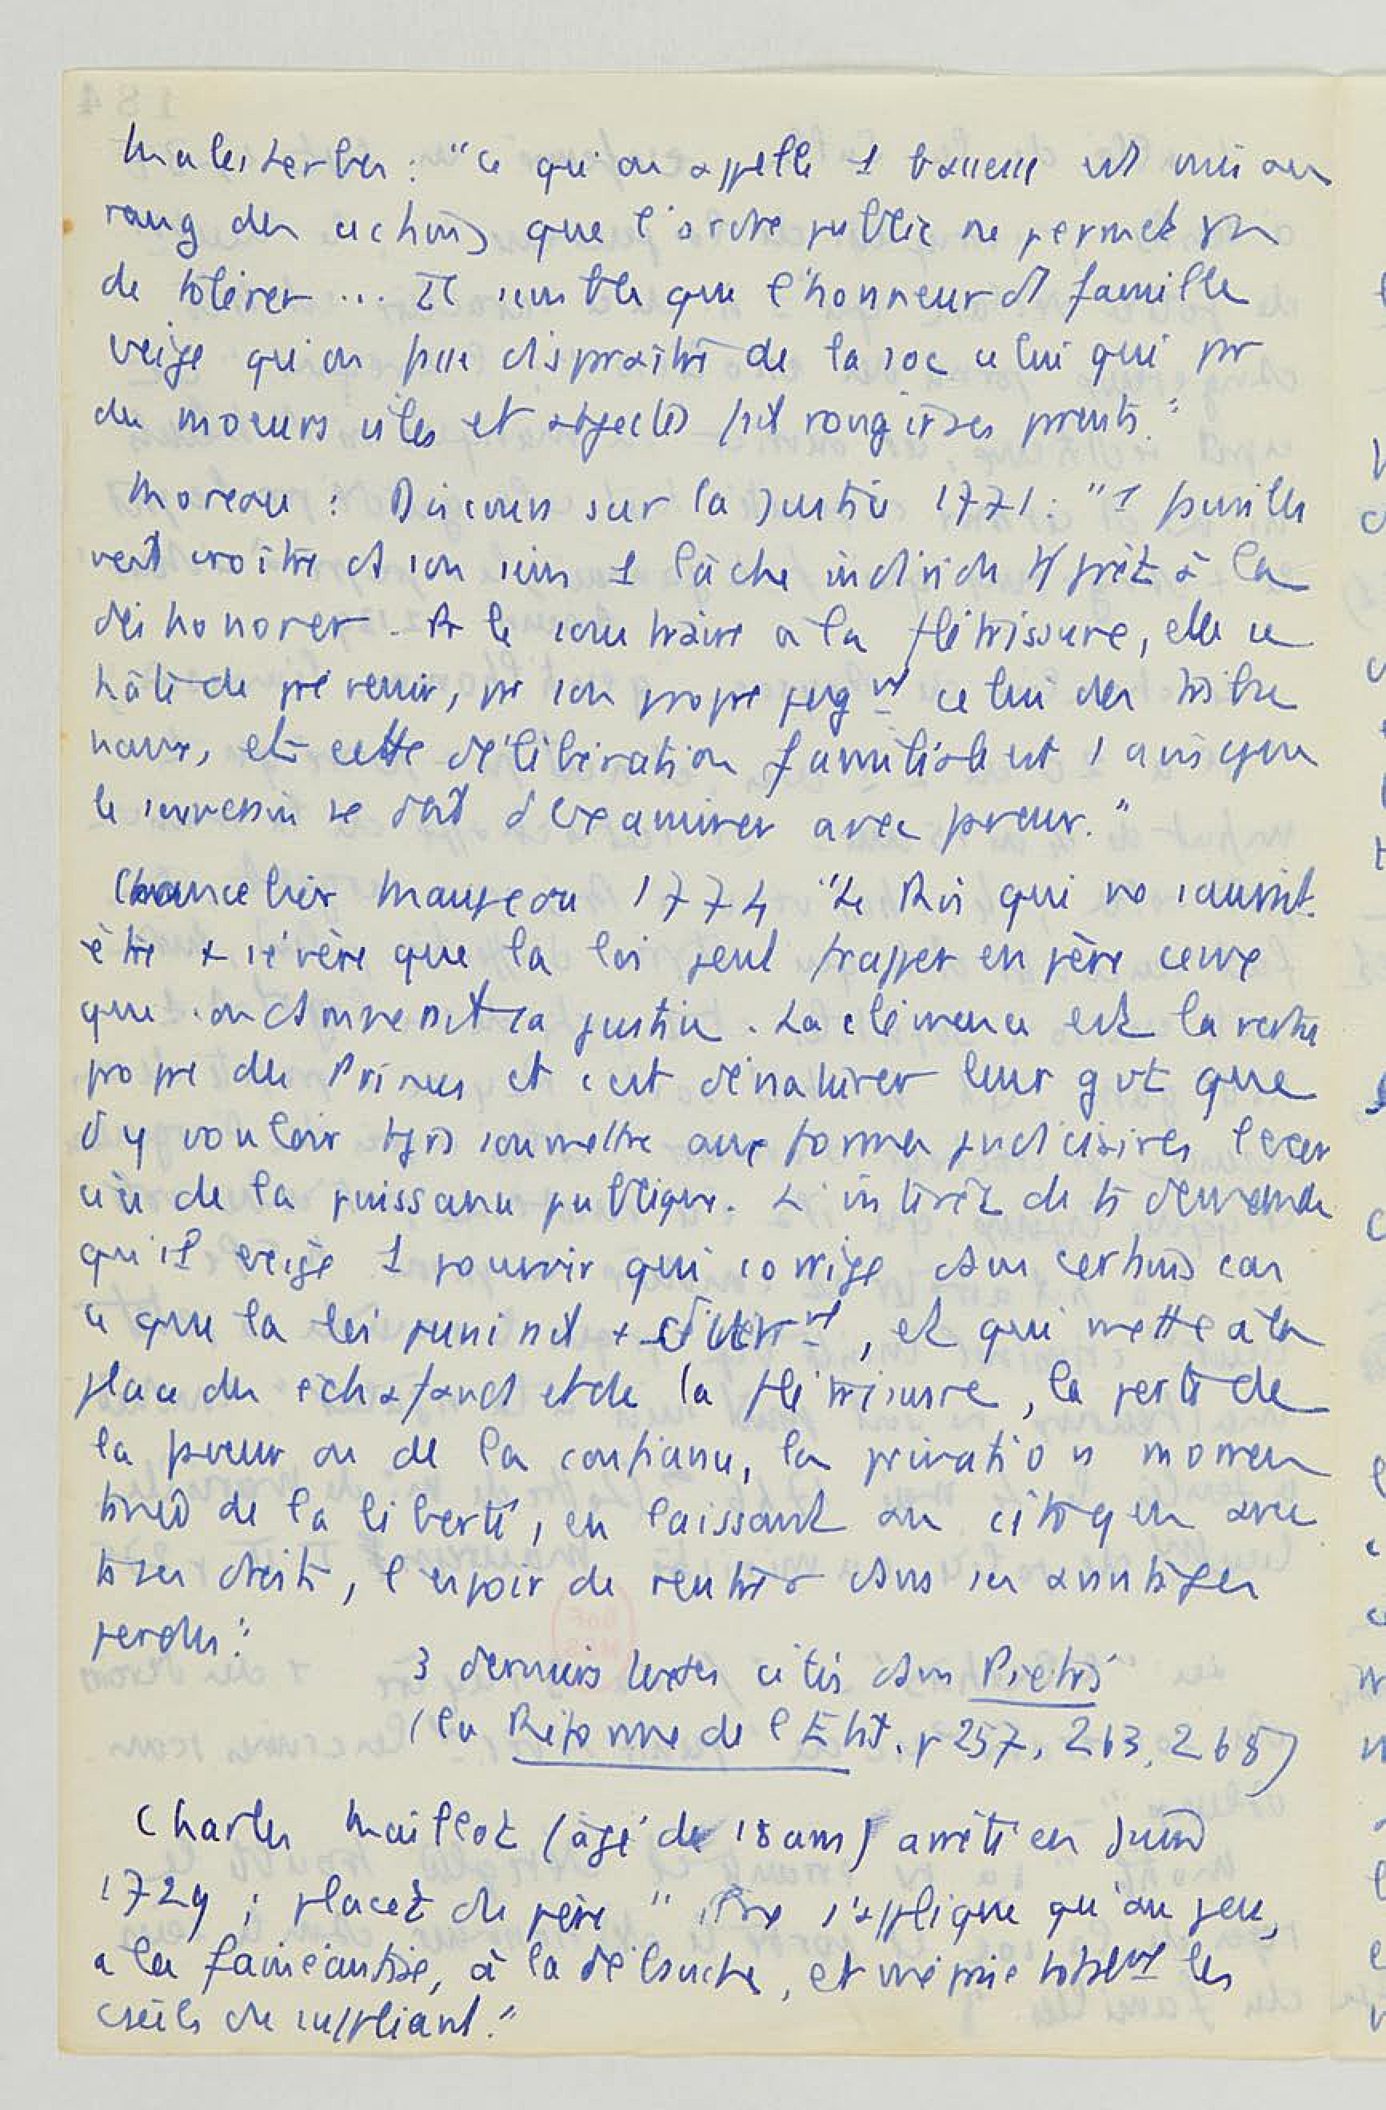 Malesherbes : "ce qu'on appelle 1 bassesse est mis au
rang des actions que l'ordre public ne permet pas
de tolérer... Il semble que l'honneur d'1 famille
exige qu'on fasse disparaître de la soc celui qui par
des moeurs viles et abjectes fait rougir ses parents."
Moreau : Discours sur la Justice 1771 : "1 famille
voit croître ds son sein 1 lâche individu tt prêt à la
déshonorer. Pr le soustraire à la flétrissure, elle se
hâte de prévenir, par son propre jugᵗ celui des tribu
naux, et cette délibération familiale est 1 avis que
le souverain se doit d'examiner avec faveur."
Chancelier Maupeou 1774 "Le Roi qui ne saurait
être + sévère que la loi peut frapper en père ceux
que condamnerait sa justice. La clémence est la vertu
propre des Princes et c'est dénaturer leur gvt que
d'y vouloir tjrs soumettre aux formes judiciaires l'exer
cice de la puissance publique. L'intérêt de ts demande
qu'il exige 1 pouvoir qui corrige dans certains cas
ce que la loi punirait +, et qui mette à la
place des échafaud et de la flétrissure, la perte de
la faveur ou de la confiance, la privation momen
tanée de la liberté, en laissant au citoyen avec
ts ses droits, l'espoir de rentrer dans ses avantages
perdus."
3 derniers textes cités dans Pietri
(La Réforme de l'Etat. p 257, 263, 268)
Charles Maillot (âgé de 18 ans) arrêté en Juin
1729 ; placet du père " s'applique qu'au jeu,
a la fainéantise, à la débauche, et méprise totalᵗ les
cseils du suppliant."